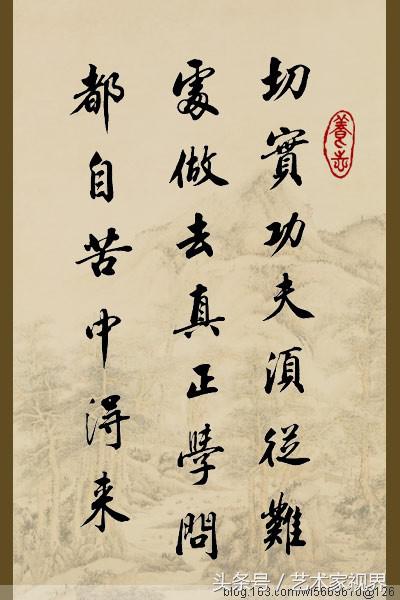 切實功夫須從難
處做去真正學問
都自苦中得来
養志
头条号／艺术家视界